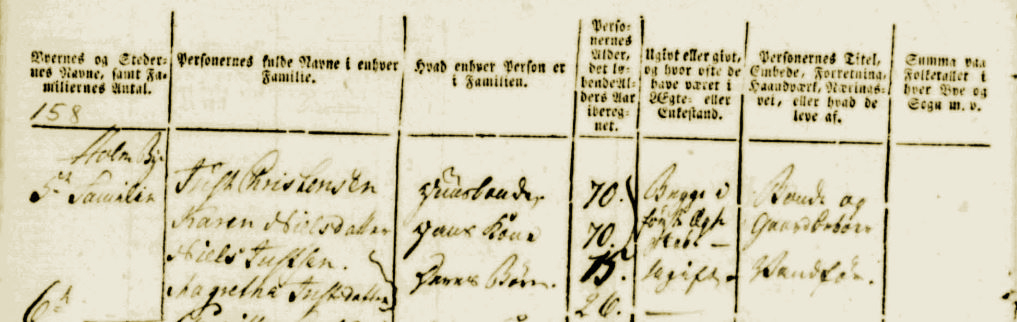 Byernes og Steder-
nes Navne, samt Fa-
miliernes Antal.
158
Personernes fulde Navne i enhver
Familie.
Hvad enhver Person er
i Familien.
Perso-
nernes
Alder,
det lø-
bende Al-
ders Aar
ibereg-
net.
Ugivt eller givt,
og hvor ofte de
have været i
Ægte- eller
Enkestand.
Personernes Titel,
Embede, Forretning,
Haandværk, Nærings-
vei, eller hvad de
leve af.
Summa paa
Folketallet i
hver Bye og
Sogn m. v.
Holm Bye
5te Familie Just Christensen Huusbonde 70. Begge i Bonde og
Karen Nielsdatter Hans Kone 70. første Ægte Gaardbeboer
Niels Justsen. Deres Børn. 15. ugift
Magretha Justsdatter 26.
6te